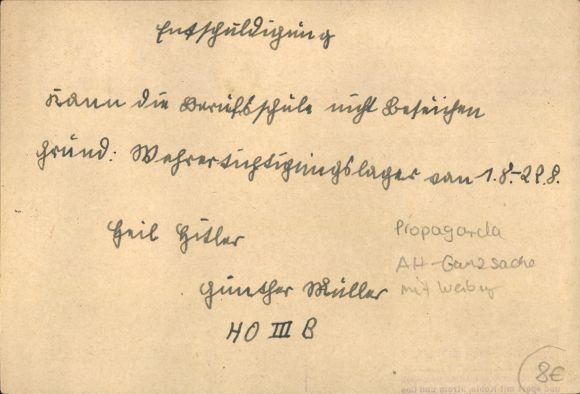 Entschuldigung
Kann die Berufsschule nicht Besuchen
Grund: Wehrertüchtigungslager vom 1.8.-22.8.
Heil Hitler
Günther Müller
HO III B
Propaganda
AH-Ganzsache
mit
8€